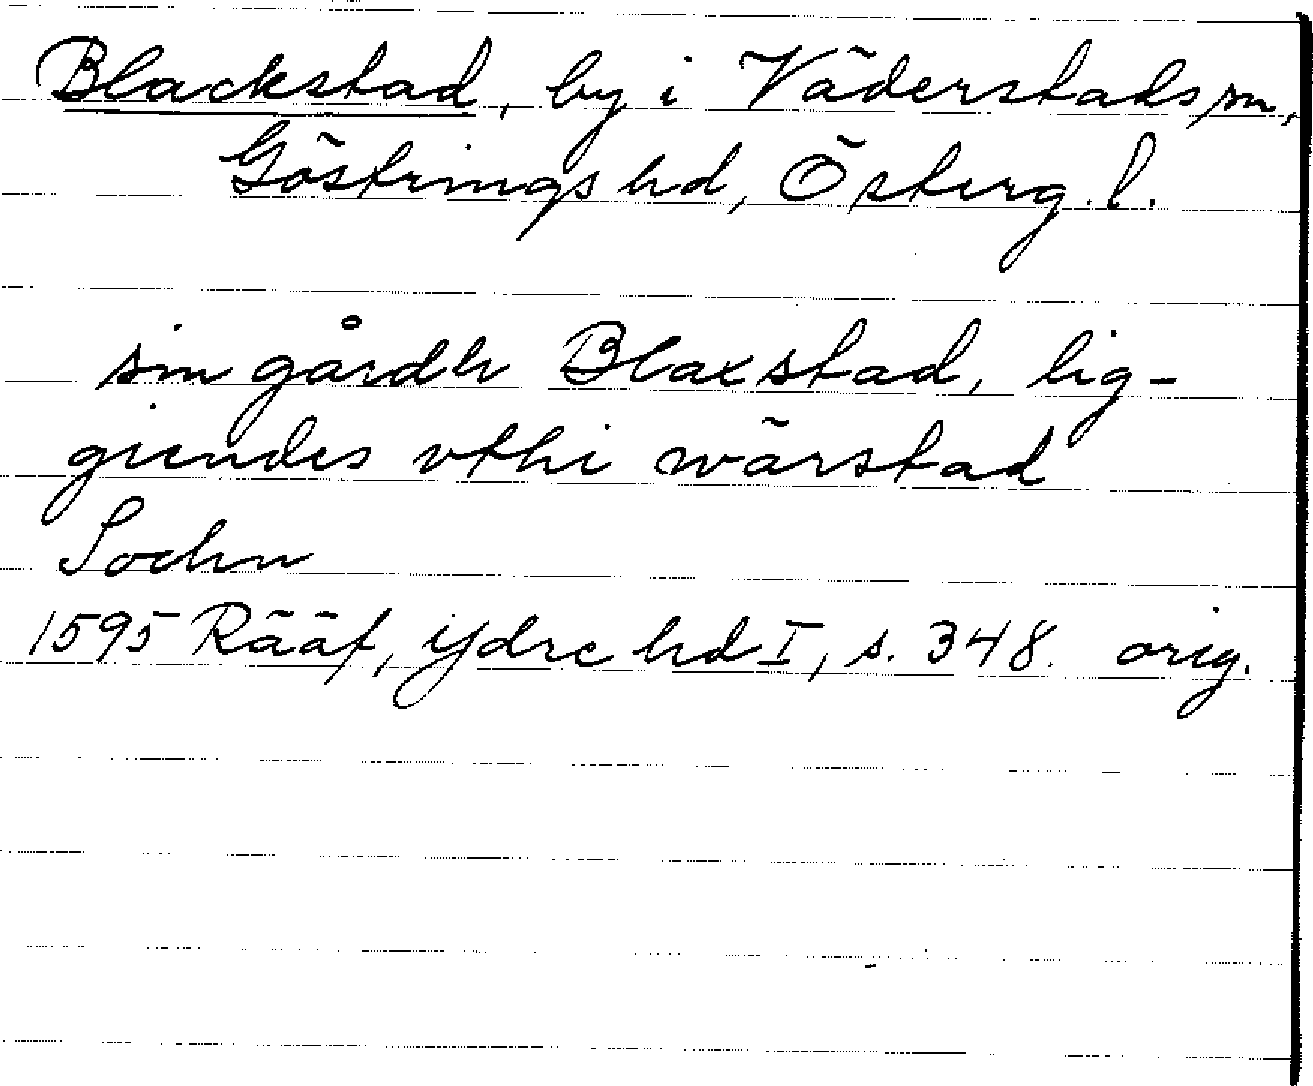 Blackstad, by i Väderstads sn,
Göstrings hd, Österg. l.
sin gårdh Blaxstad, lig-
giendes vthi wärstad
Sochn
1595 Rääf, Ydre hd I, s. 348. orig.